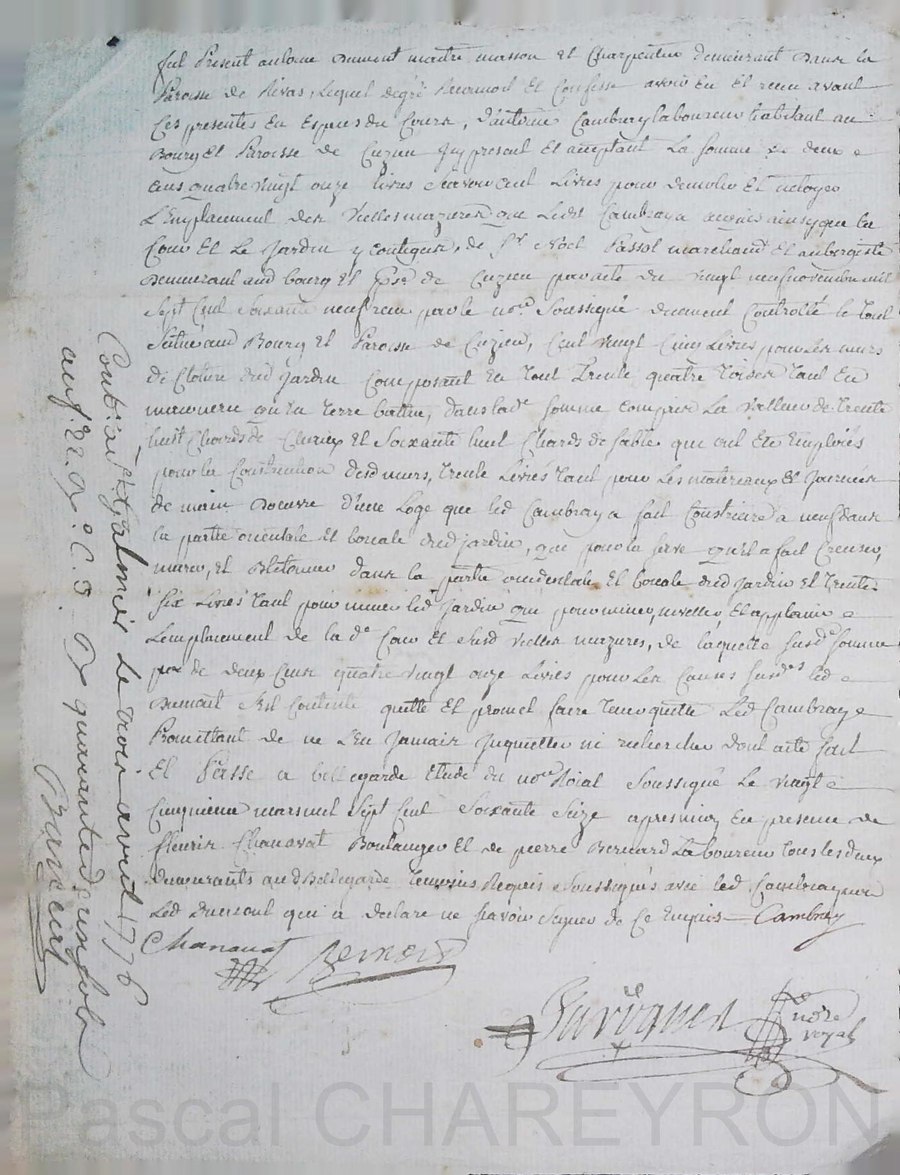 fut Present antoine Dumont maitre masson et Charpentier demeurant dans la
Paroisse de Rivas, lequel degré Reconnoit et Confesse avoir eu et receu avant
Ces presentes en Especes du Cours, d'antoine Cambray laboureur habitant au
Bourg et Paroisse de Cuzieu icy present et acceptant La somme de deux
cens quatre vingt onze livres scavoir cent Livres pour demolir et netoyer
L'Emplacement des Vielles mazures que Ledt Cambray a acquis ainsy que la
Cour et Le Jardin y contigus, de Sr Noel Passot marchand et aubergiste
demeurant aud bourg et Psse de Cuzieu par acte du vingt neuf novembre mil
Sept Cent Soixante neuf receu par le nore Soussigné duement Controllé le tout
Scitué aud Bourg et Paroisse de Cuzieu, Cent vingt Cinq Livres pour les murs
de Cloture dud Jardin Composant en tout Trente quatre toises tant en
massonerie qu'en terre battue, dans lade somme compris La Valleur de trente
huit Chards de et Soixante huit Chards de sable qui ont été Emploiés
pour la Construction desd murs, trente Livres tant pour Les materiaux et Journées
de main d'oeuvre d'une Loge que led Cambray a fait Construire a neuf dans
la partie orientale et boreale dud jardin, que pour la serve qu'il a fait Creuser,
murer, et Bletonner dans la partie occidentale et boreale dud Jardin et trente
Six Livres tant pour miner led Jardin que pour miner, niveller, et applanir
L'emplacement de la de Cour et susd vielles mazures, de laquelle susde somme
de deux Cens quatre vingt onze Livres pour les Causes susdes led
Dumont s'est Contenté quitte et promet faire tenir quitte Led Cambray
Promettant de ne L'en Jamais Inquietter ni rechercher dont acte fait
et Passé a bellegarde Etude du nore Roial Soussigné Le vingt
Cinquieme mars mil Sept Cent Soixante Seize apres midy En presence de
fleuris Chanavat Boulanger et de pierre Bernard Laboureur tous les deux
demeurants aud Bellegarde temoins Requis Soussignés avec led Cambray non
Led Dumont qui a declaré ne scavoir signer de ce Enquis Cambray
Chanavat Bernard
nore
royal
Contr. à St Galmier Le trois avril 1776
quarante deux sols